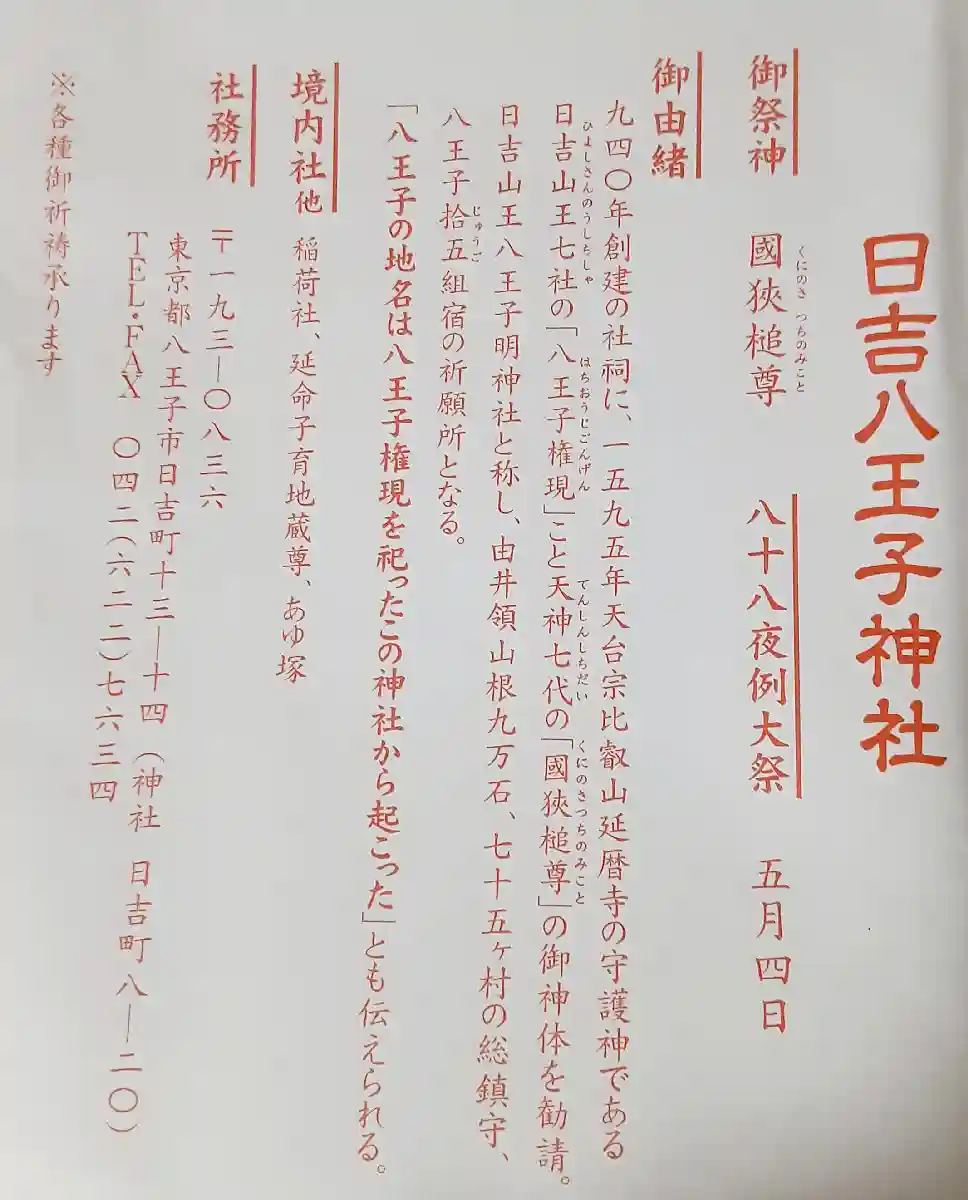 日吉八王子神社
御祭神　國狹槌尊　八十八夜例大祭　五月四日
くにのさ つちのみこと
御由緒
九四〇年創建の社祠に、一五九五年天台宗比叡山延暦寺の守護神である
日吉山王七社の「八王子権現」こと天神七代の「國狹槌尊」の御神体を勧請。
ひよしさんのうしちしゃ　はちおうじごんげん　てんしんしちだい　くにのさつちのみこと
日吉山王八王子明神社と称し、由井領山根九万石、七十五ヶ村の総鎮守、
八王子拾五組宿の祈願所となる。
じゅうご
「八王子の地名は八王子権現を祀ったこの神社から起こった」とも伝えられる。
境内社他　稲荷社、延命子育地蔵尊、あゆ塚
社務所
〒一九三―〇八三六
東京都八王子市日吉町十三―十四（神社　日吉町八―二〇）
TEL・FAX　〇四二（六二二）七六三四
※各種御祈祷承ります